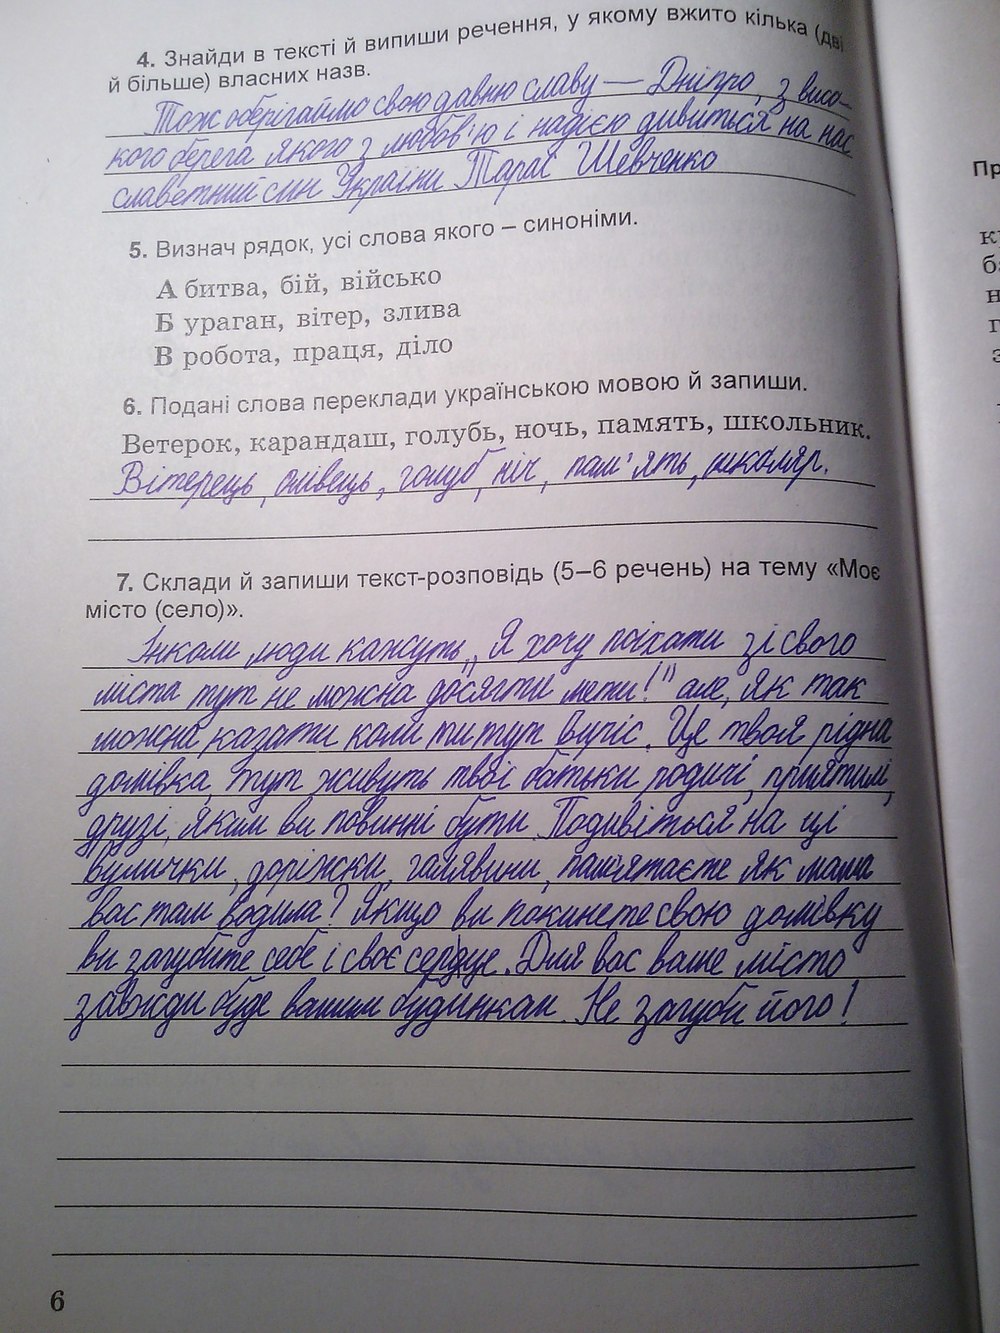 4. Знайди в тексті й випиши речення, у якому вжито кілька (дві
й більше) власних назв.
Тож оберігаймо свою давню славу — Дніпро, з висо-
кого берега якого з любов'ю і надією дивиться на нас
славетний син України Тарас Шевченко
5. Визнач рядок, усі слова якого – синоніми.
А битва, бій, військо
Б ураган, вітер, злива
В робота, праця, діло
6. Подані слова переклади українською мовою й запиши.
Ветерок, карандаш, голубь, ночь, память, школьник.
Вітерець, олівець, голуб, ніч, пам'ять, школяр.
7. Склади й запиши текст-розповідь (5–6 речень) на тему «Моє
місто (село)».
Інколи люди кажуть „Я хочу поїхати зі свого
міста тут не можна досягти мети!" але, як так
можна казати коли ти тут виріс. Це твоя рідна
домівка, тут живуть твої батьки родичі, приятилі,
друзі, яким ви повинні бути. Подивіться на ці
вулички, доріжки, галявини, пам'ятаєте як мама
вас там водила? Якщо ви покинете свою домівку
ви загубите себе і своє сердце. Для вас ваше місто
завжди буде вашим будинкам. Не загуби його!
6
Пр
к
б
н
г
з